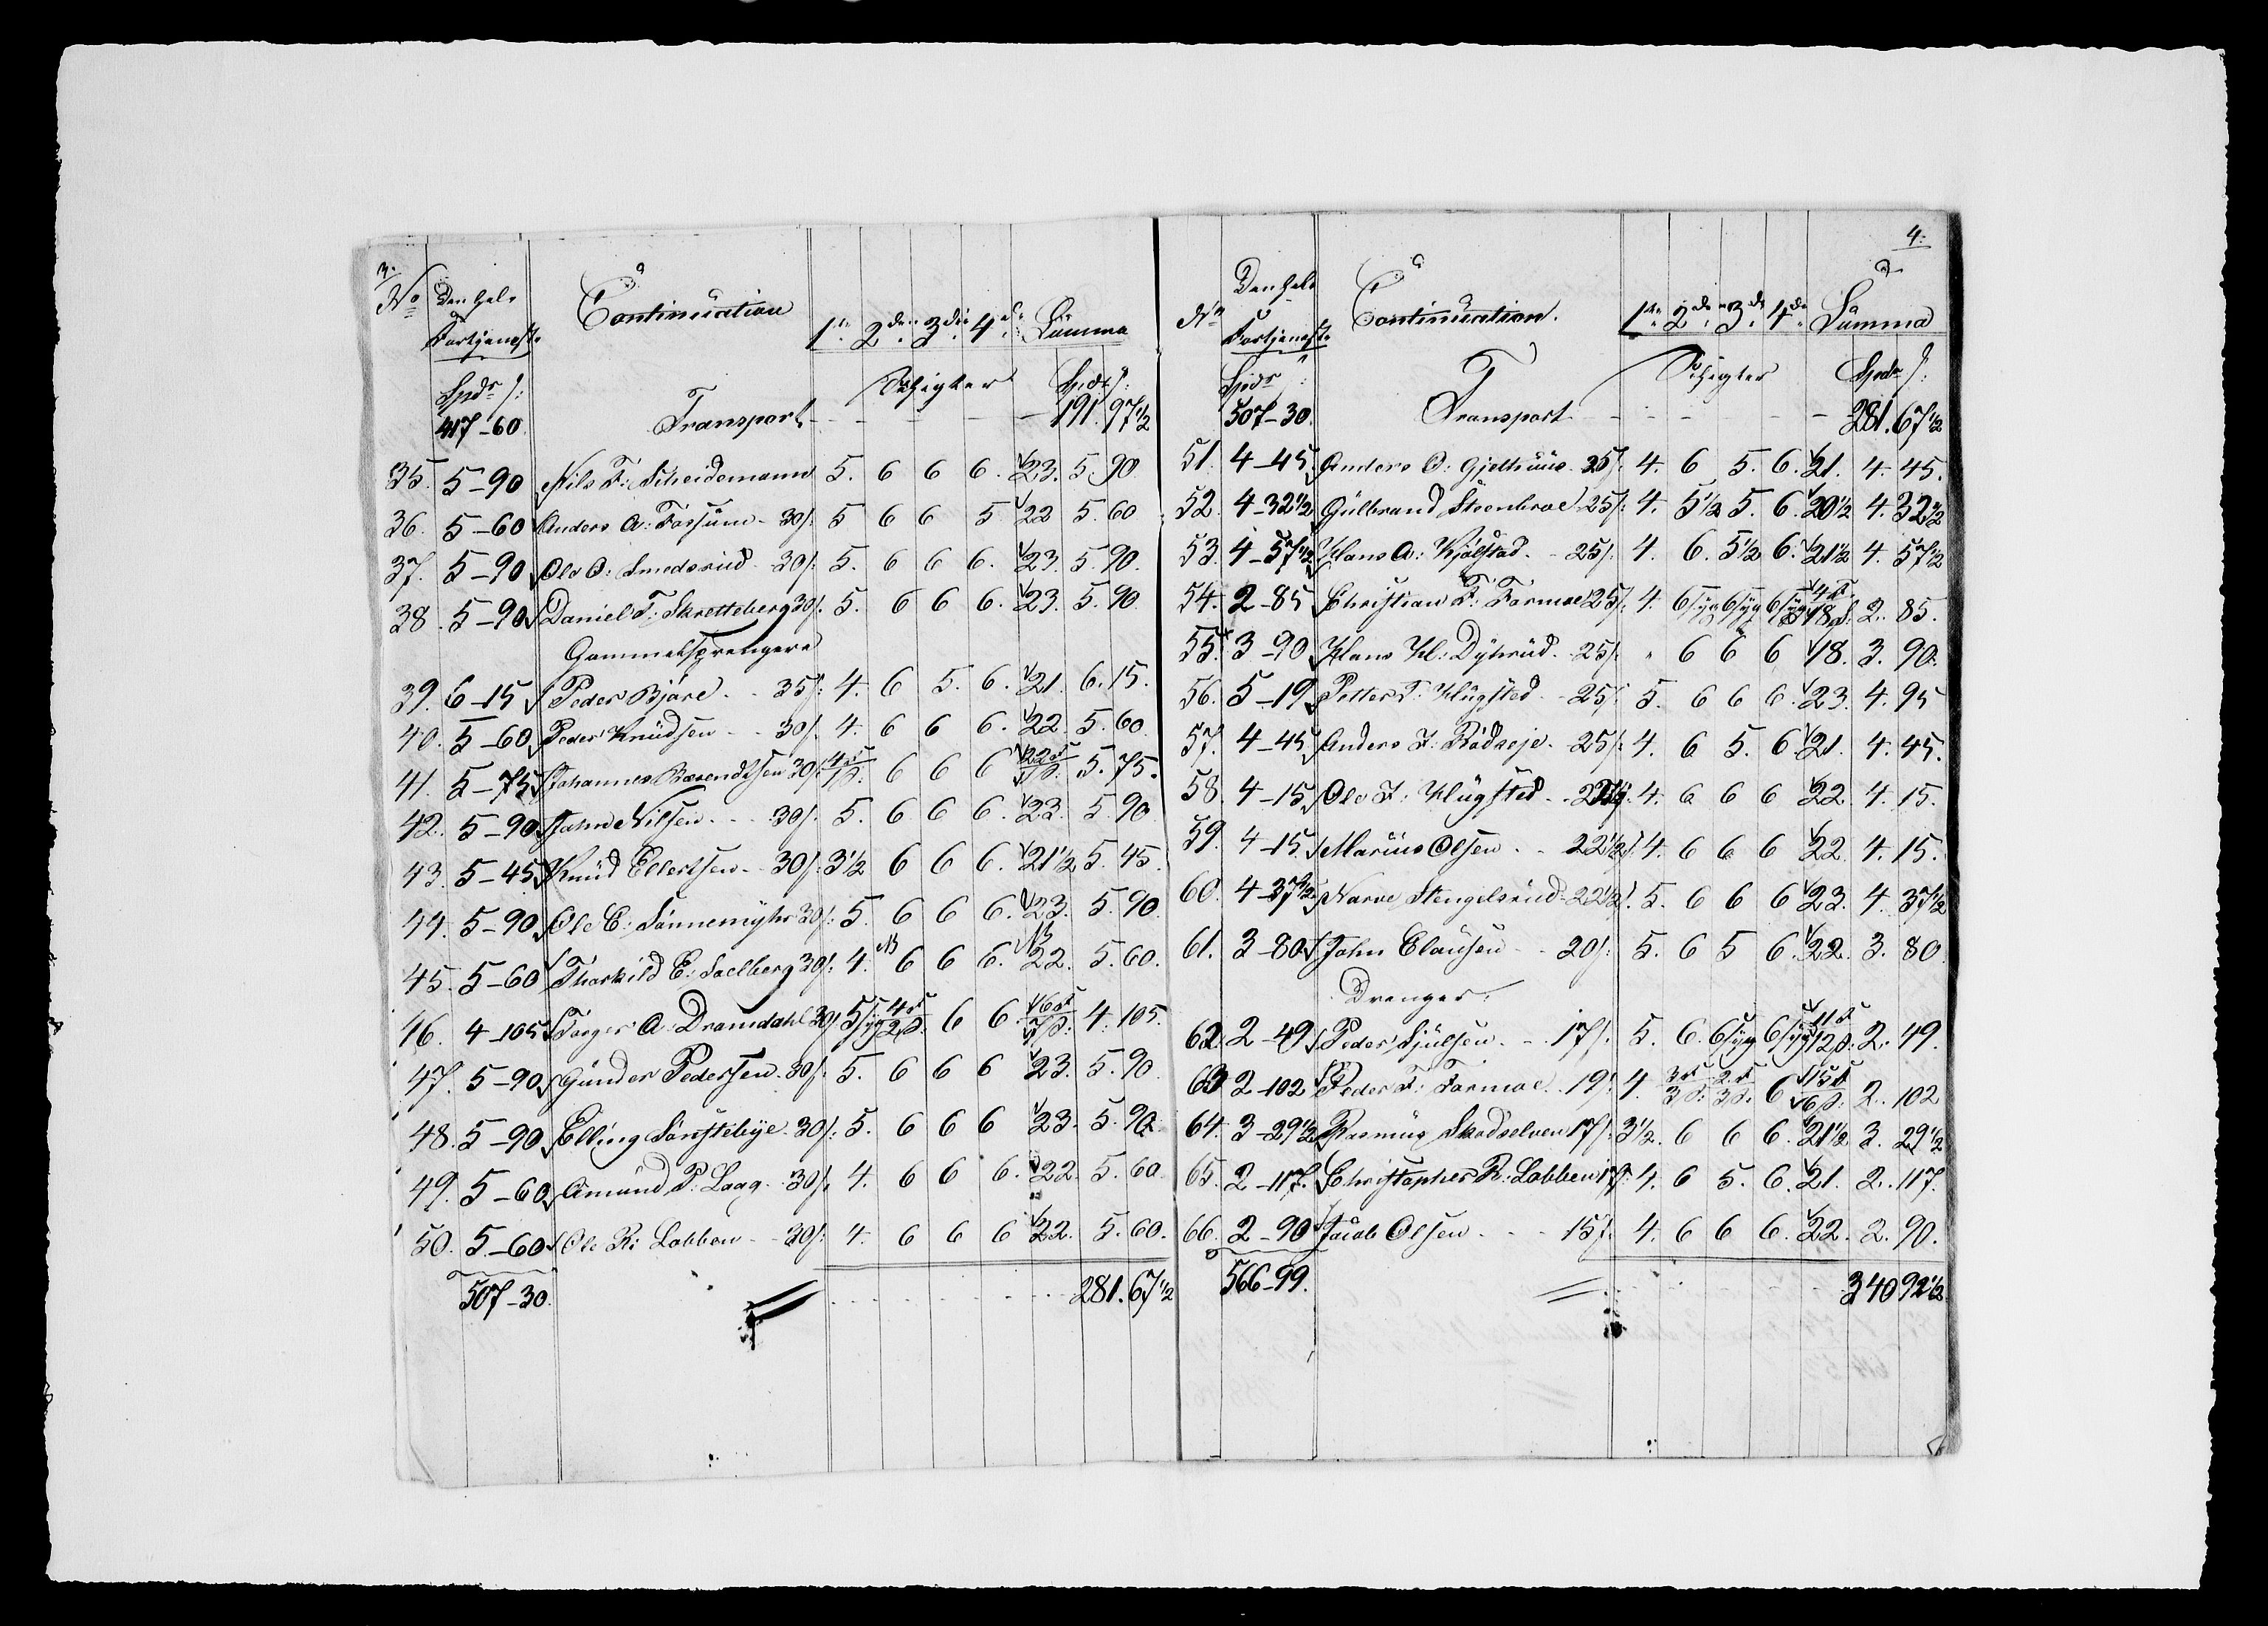 3.
No Den hele Continuation 1te 2den 3die 4de Summa
Fortjeneste
Spdr s: Schigter Spdr s:
417-60 Transport - - - 191. 97 1/2
35. 5-90 Nils F: Scheidemann 5. 6 6 6. 23. 5. 90
36. 5-60 Anders A: Fossum - 30s: 5 6 6 5 22 5. 60
37. 5-90 Ole O: Smedsrud 30s: 5. 6 6 6. 23. 5. 90.
38. 5-90 Daniel F: Skretteberg 30s: 5. 6 6 6. 23. 5. 90
Gammelsprengere
39. 6-15 Peder Bjøre - 35s: 4. 6 5. 6. 21. 6. 15.
40. 5-60 Peder Knudsen - 30s. 4. 6 6 6. 22. 5. 60
41. 5-75 Johannes Bærendtsen 30s: 4 S 1 P: 6 6 6 22 S 1 P: 5. 75.
42. 5-90 John Nilsen - - 30s. 5. 6 6 6. 23. 5. 90
43. 5-45 Knud Ellertsen - 30s: 3 1/2 6 6 6. 21 1/2 5. 45
44. 5-90 Ole E: Sønnemyhr 30s: 5 6 6 6. 23. 5. 90
45. 5-60 Thorkild E: Saelberg 30s: 4. 6 6 6. 22. 5. 60.
46. 4-105 Torger A: Dramdahl 30s 5 syg 4 S 2 P: 6 6. 16 S 7 P: 4. 105.
47. 5-90 Gunder Pedersen - 30s: 5. 6 6 6 23. 5. 90
48. 5-90 Elling Sønstebye - 30s: 5. 6 6 6 23. 5. 90
49. 5-60 Amund P: Laag - 30s. 4. 6 6 6. 22. 5. 60
50. 5-60 Ole R: Lobben - 30s: 4. 6 6 6 22. 5. 60.
507-30. - - - 281. 67 1/2
4.
No Den hele Continuation. 1te 2den 3de 4de Summa
Fortjeneste
Spdr : Schigter Spdr s:
507-30. Transport - - - 281. 67 1/2
51. 4-45. Anders O: Gjelhuus 25s: 4. 6 5. 6. 21. 4. 45.
52. 4-32 1/2 Gulbrand Steenbroe 25s: 4. 5 1/2 5. 6. 20 1/2 4. 32 1/2
53. 4-57 1/2 Hans A: Kjølstad - 25s. 4. 6. 5 1/2 6. 21 1/2 4. 57 1/2
54. 2-85 Christian F: Formoe 25s. 4. 6 syg 6 syg 6 syg 4 S 18 P. 2. 85.
55. 3-90 Hans Hl: Dyhrud - 25s. " 6 6 6 18. 3. 90.
56. 5-19 Petter F: Hugsted - 25s. 5. 6 6 6. 23. 4. 95
57. 4-45 Anders J: Rødseje - 25s: 4. 6 5. 6 21. 4. 45.
58. 4-15 Ole J: Hugsted - 4. 6 6 6 22. 4. 15.
59. 4-15. Marius Olsen - - 22 1/2s. 4. 6 6 6 22. 4. 15.
60. 4-37 1/2 Narve Stengelsrud 22 1/2s. 5. 6 6 6 23. 4. 37 1/2
61. 3-80 John Clausen - - 20s: 5. 6 5 6. 22. 3. 80
Drenger.
62. 2-49 Peder Sjulsen - - 17s: 5. 6. 6 syg 6 syg 11 S 12 P: 2. 49.
63 2-102 Peder F: Formoe - 19s: 4. 3 S 3 P: 2 S 3 P. 6 15 S 6 P: 2. 102
64. 3-29 1/2 Rasmus Skodselven 17s: 3 1/2. 6 6 6. 21 1/2 3. 29 1/2
65. 2-117. Christopher R: Lobben 17s: 4. 6 5. 6. 21. 2. 117.
66. 2-90 Jacob Olsen - - - 15s. 4. 6 6 6. 22. 2. 90.
566-99. - - - 340 92 1/2